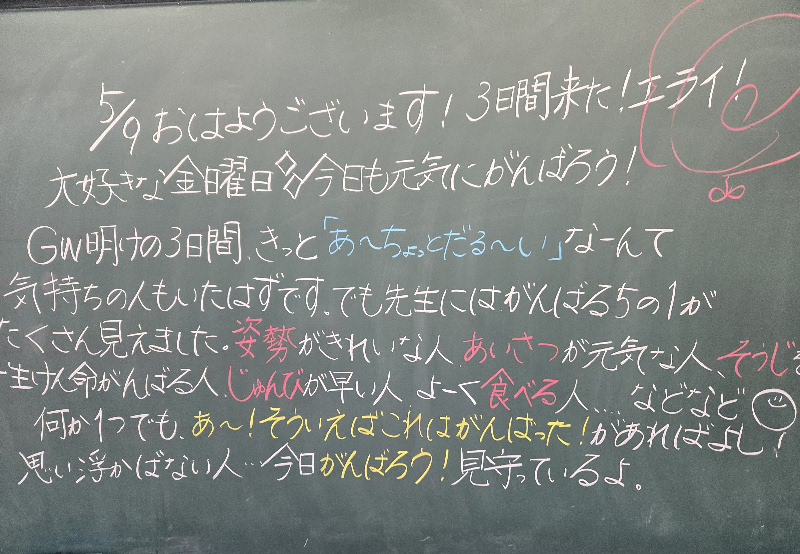 5/9 おはようございます！3日間来た！エライ！
大好きな金曜日◇◇今日も元気にがんばろう！
GW明けの3日間、きっと「あ〜ちょっとだる〜い」なーんて
気持ちの人もいたはずです。でも先生にはがんばる5の1が
たくさん見えました。姿勢がきれいな人、あいさつが元気な人、そうじを
一生けん命がんばる人、じゅんびが早い人、よーく食べる人、... などなど
何か1つでも、あ〜！そういえばこれはがんばった！があればよし！
思い浮かばない人…今日がんばろう！見守っているよ。